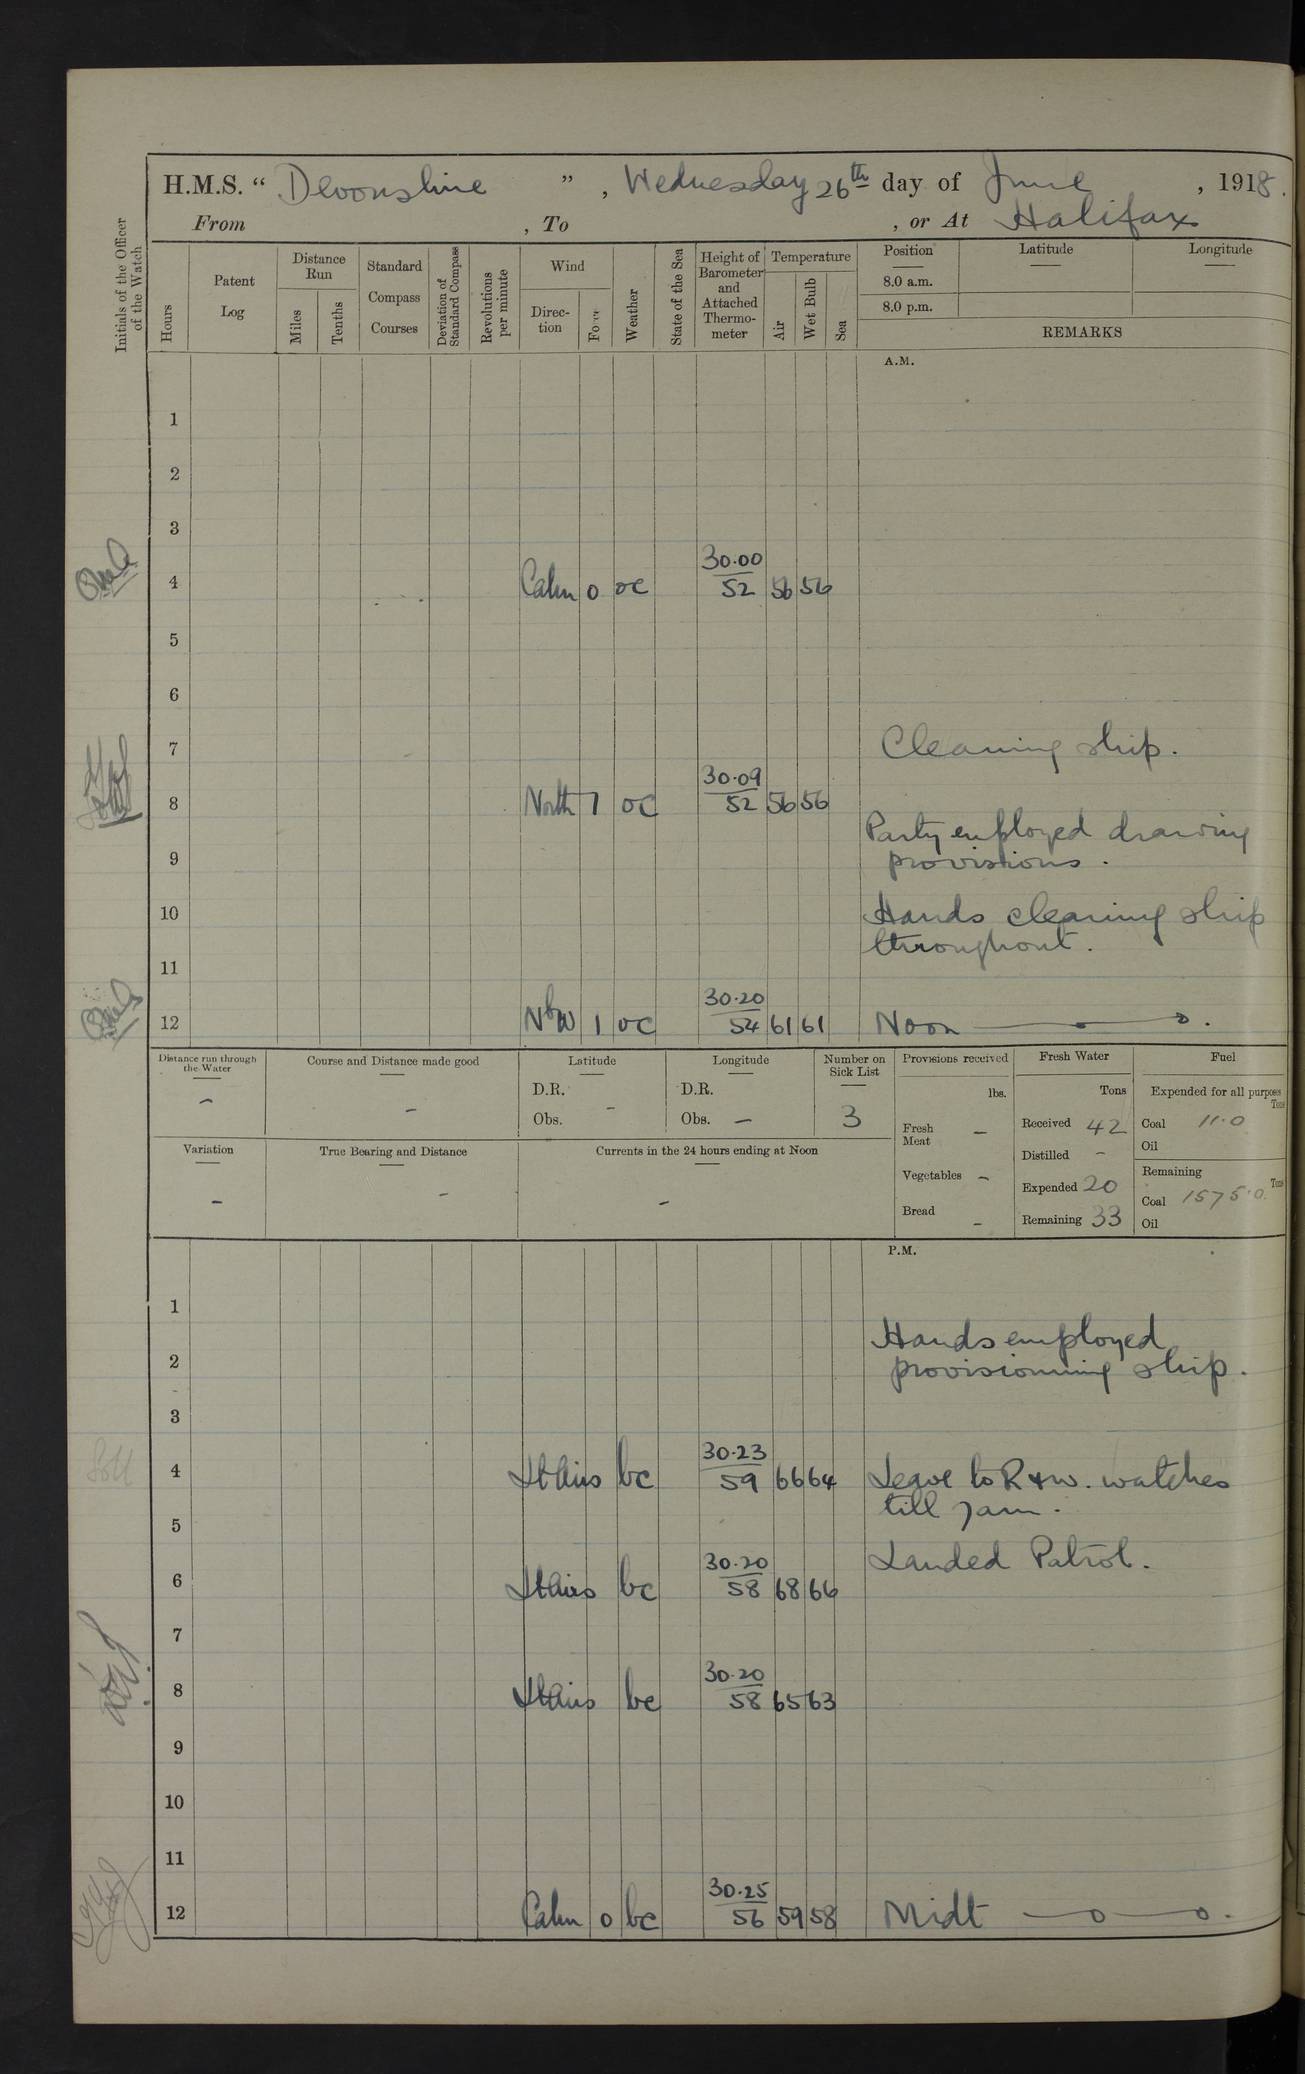 H.M.S. “ Devonshire ” , Wednesday 26th day of June , 1918.
From , To , or At Halifax
Initials of the Officer of the Watch
Hours
Patent Log
Distance Run
Miles
Tenths
Standard Compass Courses
Deviation of Standard Compass
Revolutions per minute
Wind
Direction
Force
Weather
State of the Sea
Height of Barometer and Attached Thermometer
Temperature
Air
Wet Bulb
Sea
Position
8.0 a.m.
8.0 p.m.
Latitude
Longitude
REMARKS
A.M.
1
2
3
4 Calm 0 oc 30.00/52 56 56
5
6
7 Cleaning ship.
8 North 1 oc 30.09/52 56 56
Party employed drawing
9 provisions.
10 Hands cleaning ship
throughout.
11
12 NbW 1 oc 30.20/54 61 61 Noon
Distance run through the Water
–
Course and Distance made good
–
Latitude
D.R.
Obs. –
Longitude
D.R.
Obs. –
Number on Sick List
3
Provisions received
lbs.
Fresh Meat –
Vegetables –
Bread –
Fresh Water
Tons
Received 42
Distilled –
Expended 20
Remaining 33
Fuel
Expended for all purposes
Tons
Coal 11.0
Oil
Remaining
Tons
Coal 1575.0
Oil
Variation
–
True Bearing and Distance
–
Currents in the 24 hours ending at Noon
–
P.M.
1
Hands employed
2 provisioning ship.
3
4 Lt Airs bc 30.23/59 66 64 Leave to R & W. watches
till 7am.
5
Landed Patrol.
6 Lt Airs bc 30.20/58 68 66
7
8 Lt Airs bc 30.20/58 65 63
9
10
11
12 Calm 0 bc 30.25/56 59 58 Midt